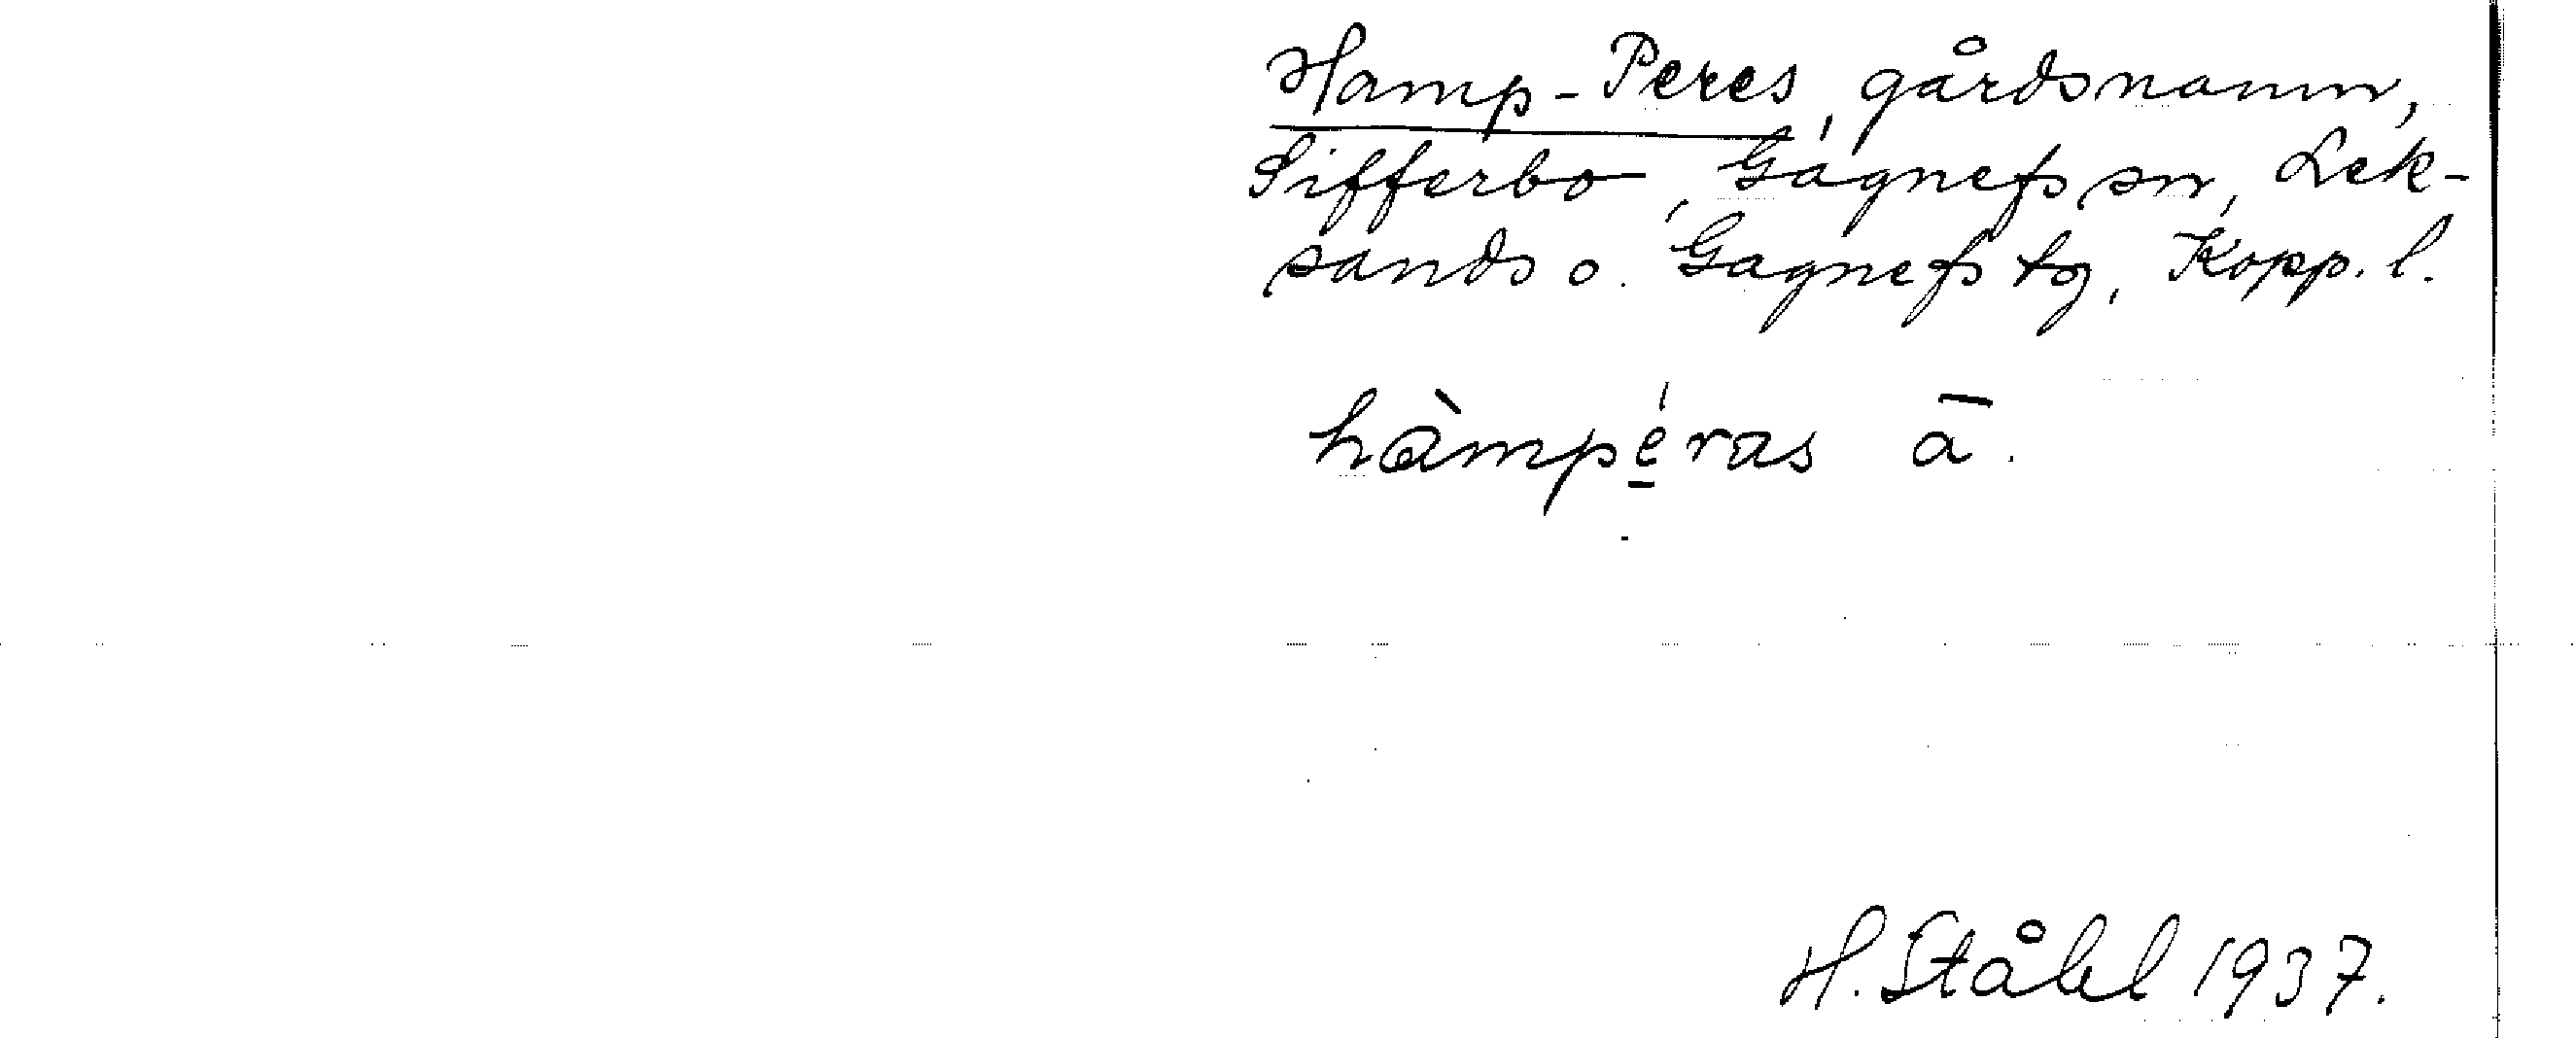 Hamp-Peres, gårdsnamn,
Sifferbo, Gagnefs sn, Lek-
sands o. Gagnefs tg, Kopp. l.
hàmpe̱ras ā.
H. Ståhl 1937.